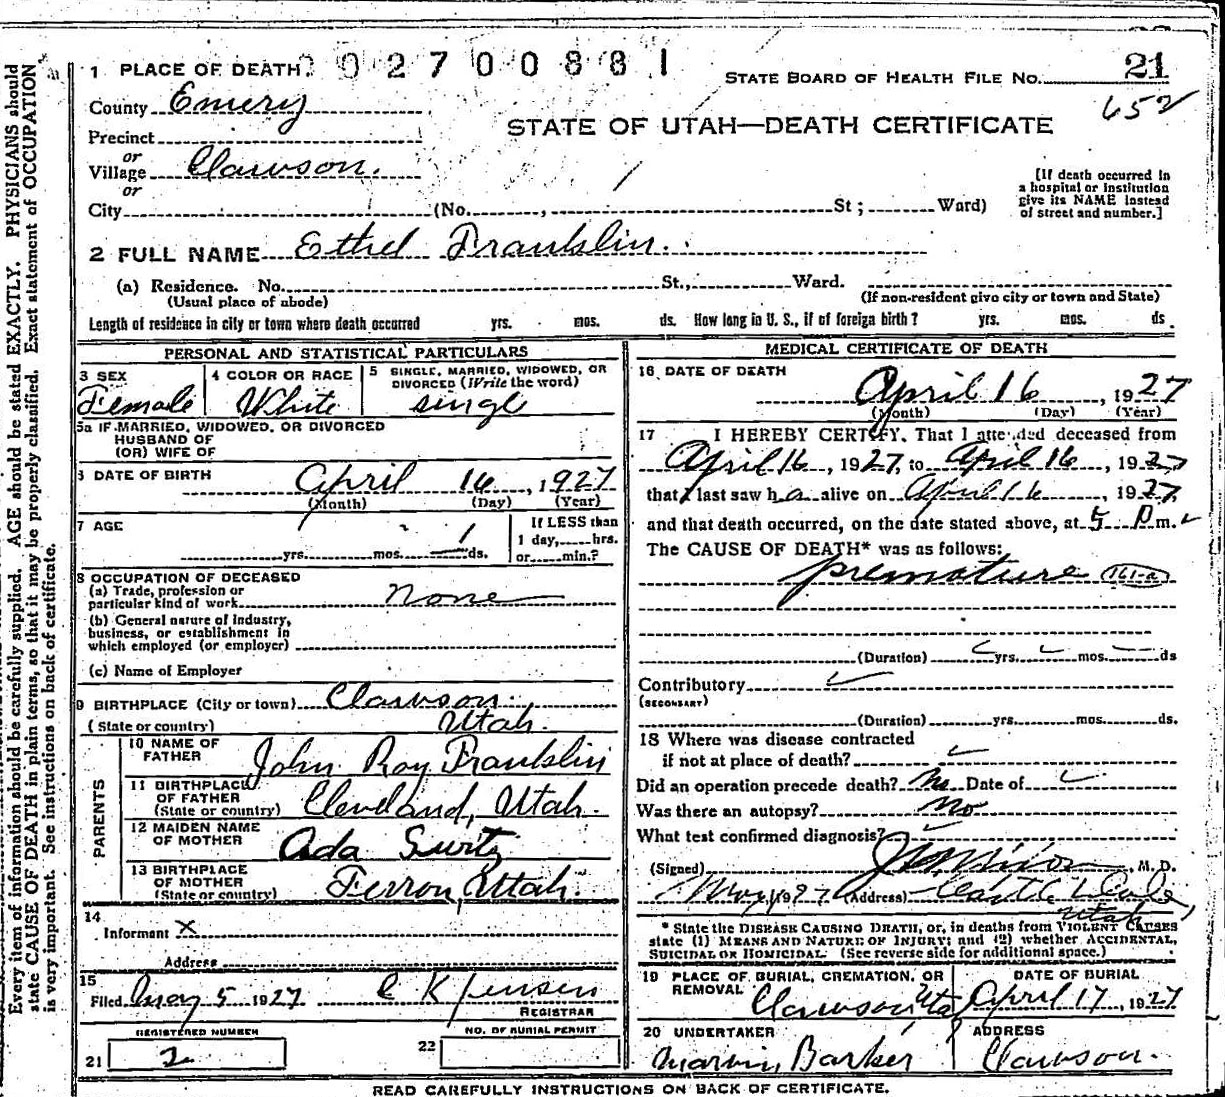 Every item of information should be carefully supplied. AGE should be stated EXACTLY. PHYSICIANS should
state CAUSE OF DEATH in plain terms, so that it may be properly classified. Exact statement of OCCUPATION
is very important. See instructions on back of certificate.
1 PLACE OF DEATH 0 2 7 0 0 8 8 1
STATE BOARD OF HEALTH FILE NO. 21
652
County Emery
STATE OF UTAH—DEATH CERTIFICATE
Precinct
or
Village Clawson.
or
City (No. , St ; Ward)
[If death occurred in
a hospital or institution
give its NAME instead
of street and number.]
2 FULL NAME Ethel Franklin.
(a) Residence. No. St., Ward.
(Usual place of abode) (If non-resident give city or town and State)
Length of residence in city or town where death occurred yrs. mos. ds. How long in U. S., if of foreign birth? yrs. mos. ds
PERSONAL AND STATISTICAL PARTICULARS
3 SEX Female
4 COLOR OR RACE White
5 SINGLE, MARRIED, WIDOWED, OR
DIVORCED (Write the word)
singl
5a IF MARRIED, WIDOWED, OR DIVORCED
HUSBAND OF
(OR) WIFE OF
6 DATE OF BIRTH April 16, 1927
(Month) (Day) (Year)
7 AGE yrs. mos. 1 ds.
If LESS than
1 day, hrs.
or min.?
8 OCCUPATION OF DECEASED
(a) Trade, profession or
particular kind of work None
(b) General nature of industry,
business, or establishment in
which employed (or employer)
(c) Name of Employer
9 BIRTHPLACE (City or town) Clawson.
(State or country) Utah.
PARENTS
10 NAME OF
FATHER John Roy Franklin
11 BIRTHPLACE
OF FATHER
(State or country) Cleveland, Utah.
12 MAIDEN NAME
OF MOTHER Ada
13 BIRTHPLACE
OF MOTHER
(State or country) Ferron, Utah.
14
Informant X
Address
15
Filed May 5 1927 C K Jensen
REGISTRAR
REGISTERED NUMBER
21 2
NO. OF BURIAL PERMIT
22
MEDICAL CERTIFICATE OF DEATH
16 DATE OF DEATH
April 16, 1927
(Month) (Day) (Year)
17 I HEREBY CERTIFY, That I attended deceased from
April 16, 1927, to April 16, 1927
that I last saw h a alive on April 16, 1927
and that death occurred, on the date stated above, at 5 P m.
The CAUSE OF DEATH* was as follows:
premature 161-a
(Duration) yrs. mos. ds
Contributory
(SECONDARY)
(Duration) yrs. mos. ds.
18 Where was disease contracted
if not at place of death?
Did an operation precede death? No Date of
Was there an autopsy? No
What test confirmed diagnosis?
(Signed) M. D.
May 1927 (Address) Castle Dale,
Utah
* State the DISEASE CAUSING DEATH, or, in deaths from VIOLENT CAUSES
state (1) MEANS AND NATURE OF INJURY; and (2) whether ACCIDENTAL,
SUICIDAL OR HOMICIDAL. (See reverse side for additional space.)
19 PLACE OF BURIAL, CREMATION, OR
REMOVAL Clawson Uta
DATE OF BURIAL
April 17, 1927
20 UNDERTAKER
Marvin Barker
ADDRESS
Clawson.
READ CAREFULLY INSTRUCTIONS ON BACK OF CERTIFICATE.